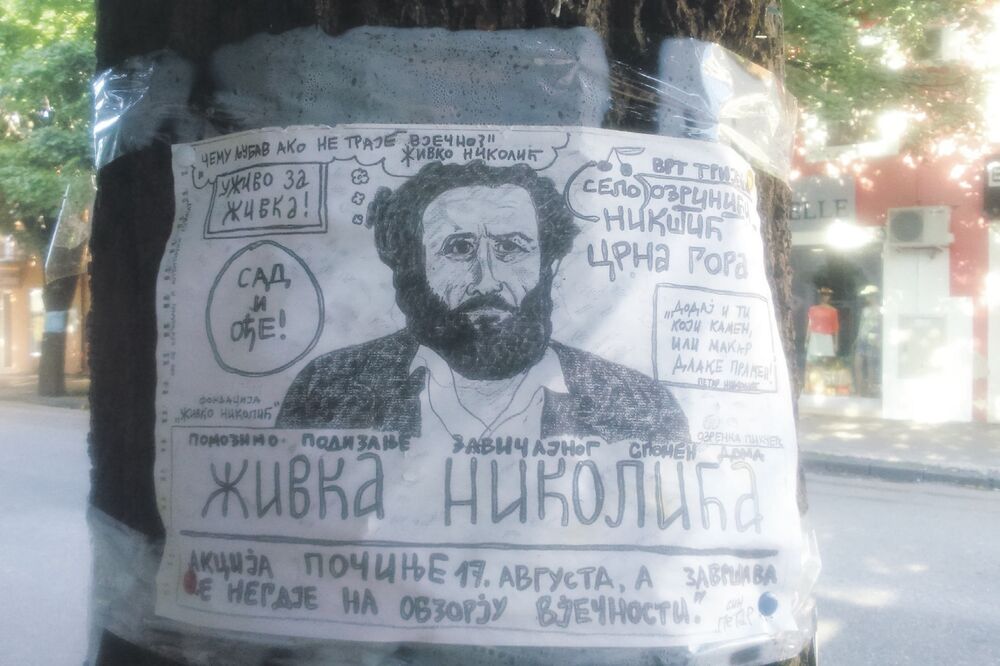 „ЧЕМУ ЉУБАВ АКО НЕ ТРАЈЕ ВЈЕЧНО?"
ЖИВКО НИКОЛИЋ
УЖИВО ЗА
ЖИВКА!
ВРТ
СЕЛО ОЗРИНИЋИ
НИКШИЋ
ЦРНА ГОРА
САД
И
ОЂЕ!
„ДОДАЈ И ТИ
КОЈИ КАМЕН,
ИЛИ МАКАР
ДЛАКЕ ПРАМЕН!"
ПЕТАР НИКОЛИЋ
ФОНДАЦИЈА
„ЖИВКО НИКОЛИЋ"
ОЗРЕНКА
ПОМОЗИМО ПОДИЗАЊЕ ЗАВИЧАЈНОГ СПОМЕН ДОМА
ЖИВКА НИКОЛИЋА
АКЦИЈА ПОЧИЊЕ 17. АВГУСТА, А ЗАВРШАВА
СЕ НЕГДЈЕ НА ОБЗОРЈУ ВЈЕЧНОСТИ."
СИН
ПЕТАР
ELLE